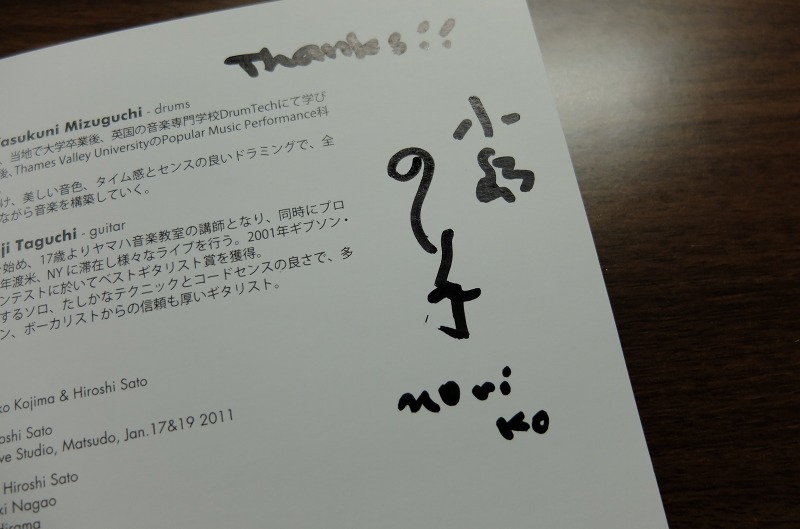 Thanks!!
asukuni Mizuguchi - drums
、当地で大学卒業後、英国の音楽専門学校DrumTechにて学び
後、Thames Valley UniversityのPopular Music Performance科
け、美しい音色、タイム感とセンスの良いドラミングで、全
ながら音楽を構築していく。
ji Taguchi - guitar
を始め、17歳よりヤマハ音楽教室の講師となり、同時にプロ
年渡米、NYに滞在し様々なライブを行う。2001年ギブソン・
ンテストに於いてベストギタリスト賞を獲得。
するソロ、たしかなテクニックとコードセンスの良さで、多
ン、ボーカリストからの信頼も厚いギタリスト。
ko Kojima & Hiroshi Sato
oshi Sato
ve Studio, Matsudo, Jan.17&19 2011
Hiroshi Sato
ki Nagao
Hirama
小島
のり子
nori
ko